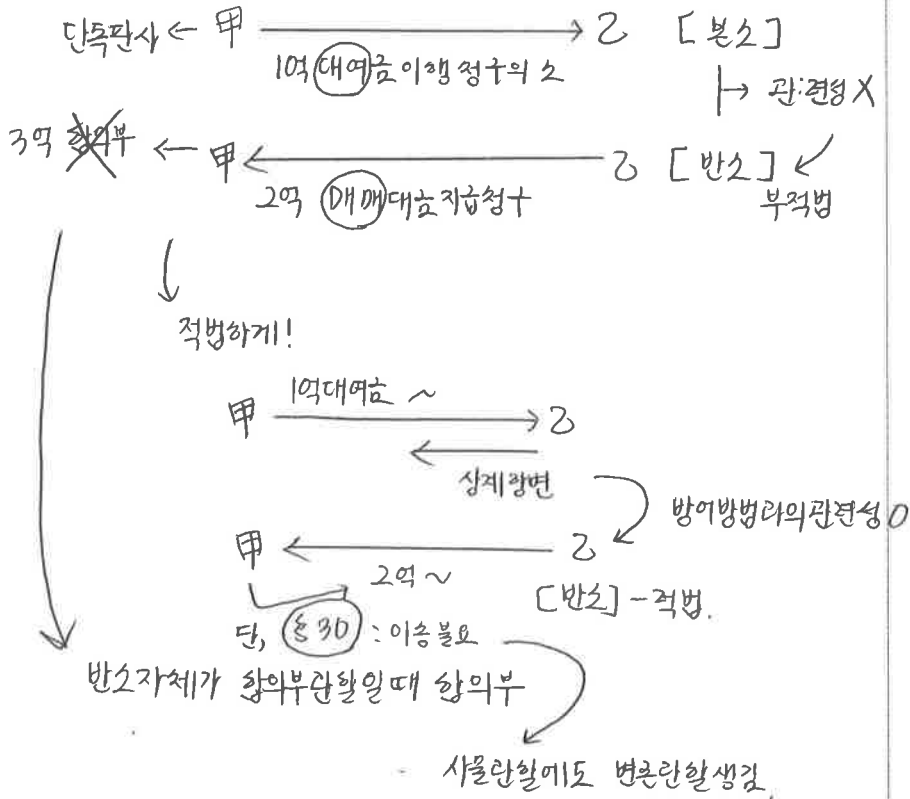 단독판사 ← 甲 → 乙 [본소]
1억 대여금 이행청구의 소
↳ 관련성 X
3억 합의부 ← 甲 ← 乙 [반소]
2억 매매대금지급청구
부적법
적법하게!
甲 1억대여금 ~ → 乙
← 상계항변
방어방법과의관련성 O
甲 ← 乙
2억 ~
[반소] - 적법.
단, §30 : 이송불요
반소자체가 합의부관할일때 합의부
사물관할에도 변론관할생김.